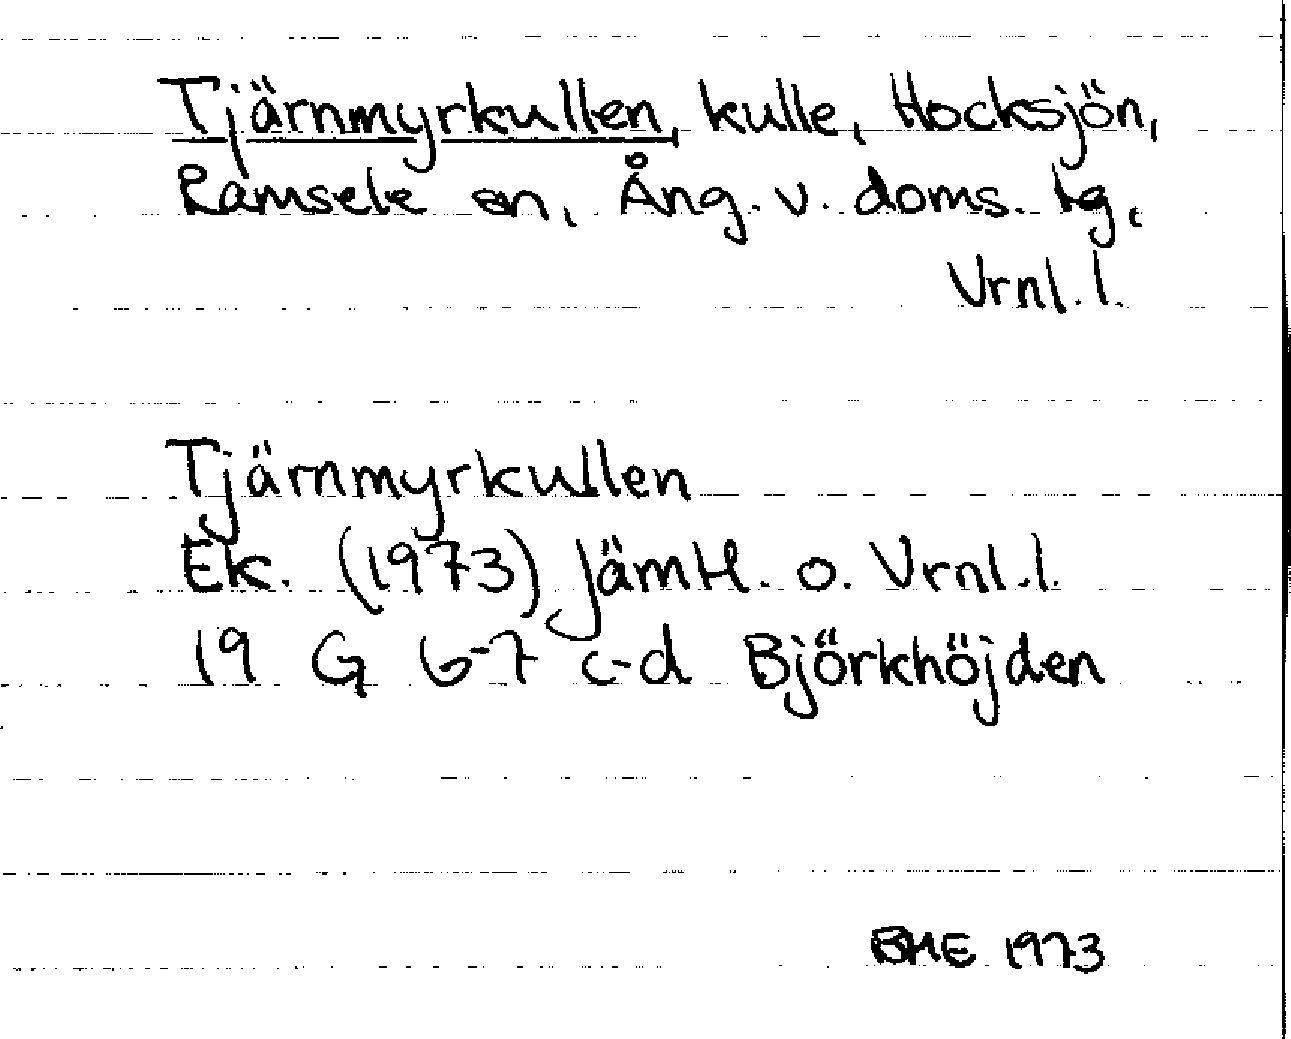 Tjärnmyrkullen, kulle, Hocksjön,
Ramsele sn, Ång. v. doms. tg,
Vrnl. l.
Tjärnmyrkullen
Ek. (1973) Jämtl. o. Vrnl. l.
19 G 6-7 c-d Björkhöjden
BME 1973